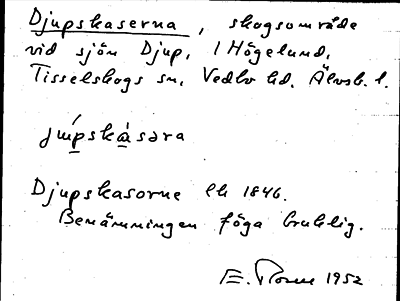 Djupskaserna, skogsområde
vid sjön Djup, i Högelund,
Tisselskogs sn, Vedbo hd. Älvsb. l.
jùpskàsəra
Djupskasorne Ek 1846.
Benämningen föga bruklig.
E. 1952